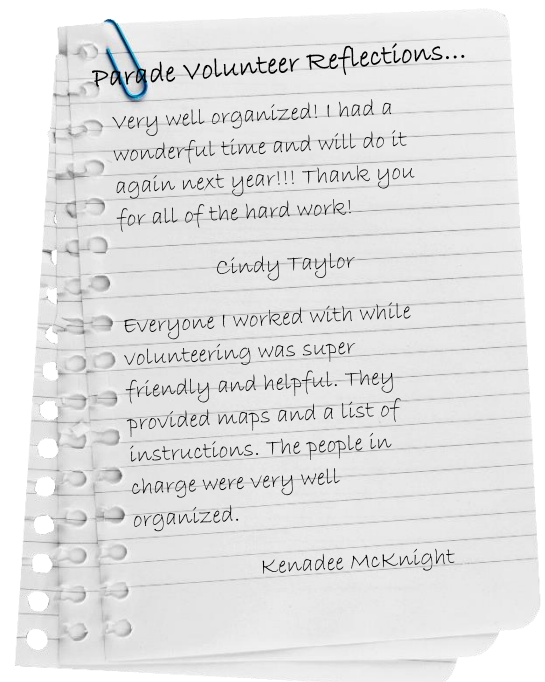 Parade Volunteer Reflections...
Very well organized! I had a
wonderful time and will do it
again next year!!! Thank you
for all of the hard work!
Cindy Taylor
Everyone I worked with while
volunteering was super
friendly and helpful. They
provided maps and a list of
instructions. The people in
charge were very well
organized.
Kenadee McKnight